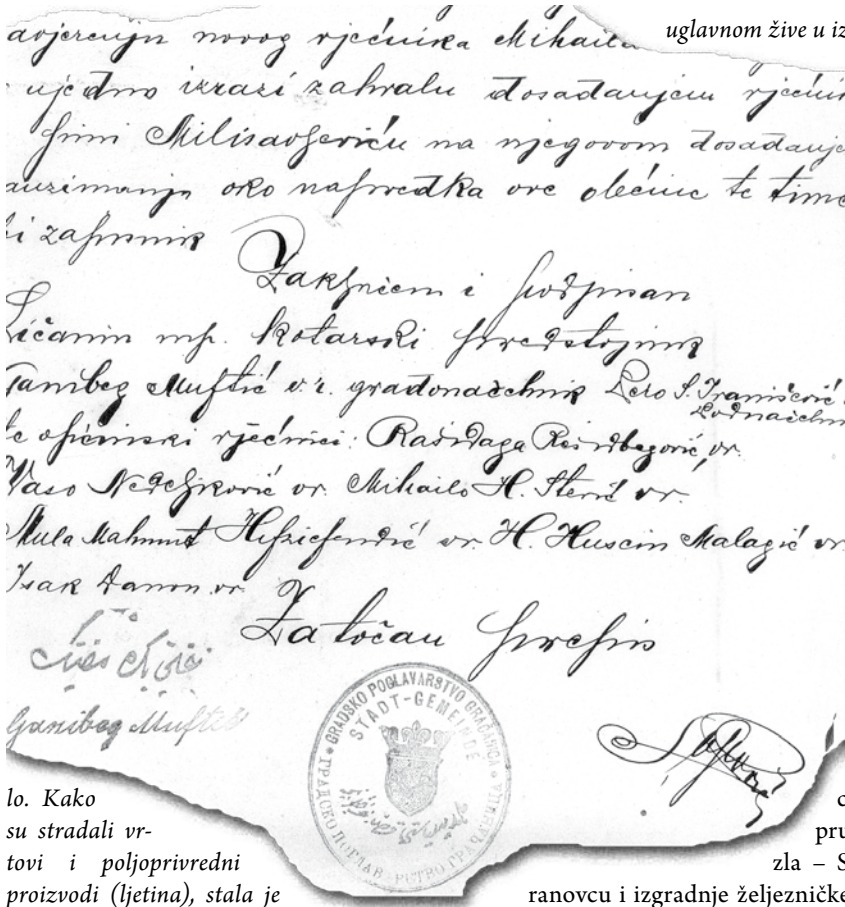 uglavnom žive u iz
novog vjećnika Mihaila
ujedno izrazi zahvalu dosadanjem vjećnik
Simi Milisavljeviću na njegovom dosadanje
auzimanju oko napredka ove obćine te time
i zapisnik
Zaključen i podpisan
Ličanin mp. kotarski predstojnik
Ganibeg Muftić v.r. gradonačelnik Pero S. Ivanišević
Podnačeln
te općinski vjećnici: Rašidaga Rešidbegović vr.
Vaso Nedeljković vr. Mihailo H. Sterić vr.
Mula Mahmut Hifziefendić vr. H. Husein Malagić vr.
Isak Danon vr.
Za točan prepis
Ganibeg Muftić
GRADSKO POGLAVARSTVO GRAČANICA
STADT-GEMEINDE
ГРАДСКО ПОГЛАВ РСТВО ГРАЧАНИЦА
lo. Kako
su stradali vr-
tovi i poljoprivredni
proizvodi (ljetina), stala je
pru
zla – S
ranovcu i izgradnje željezničke